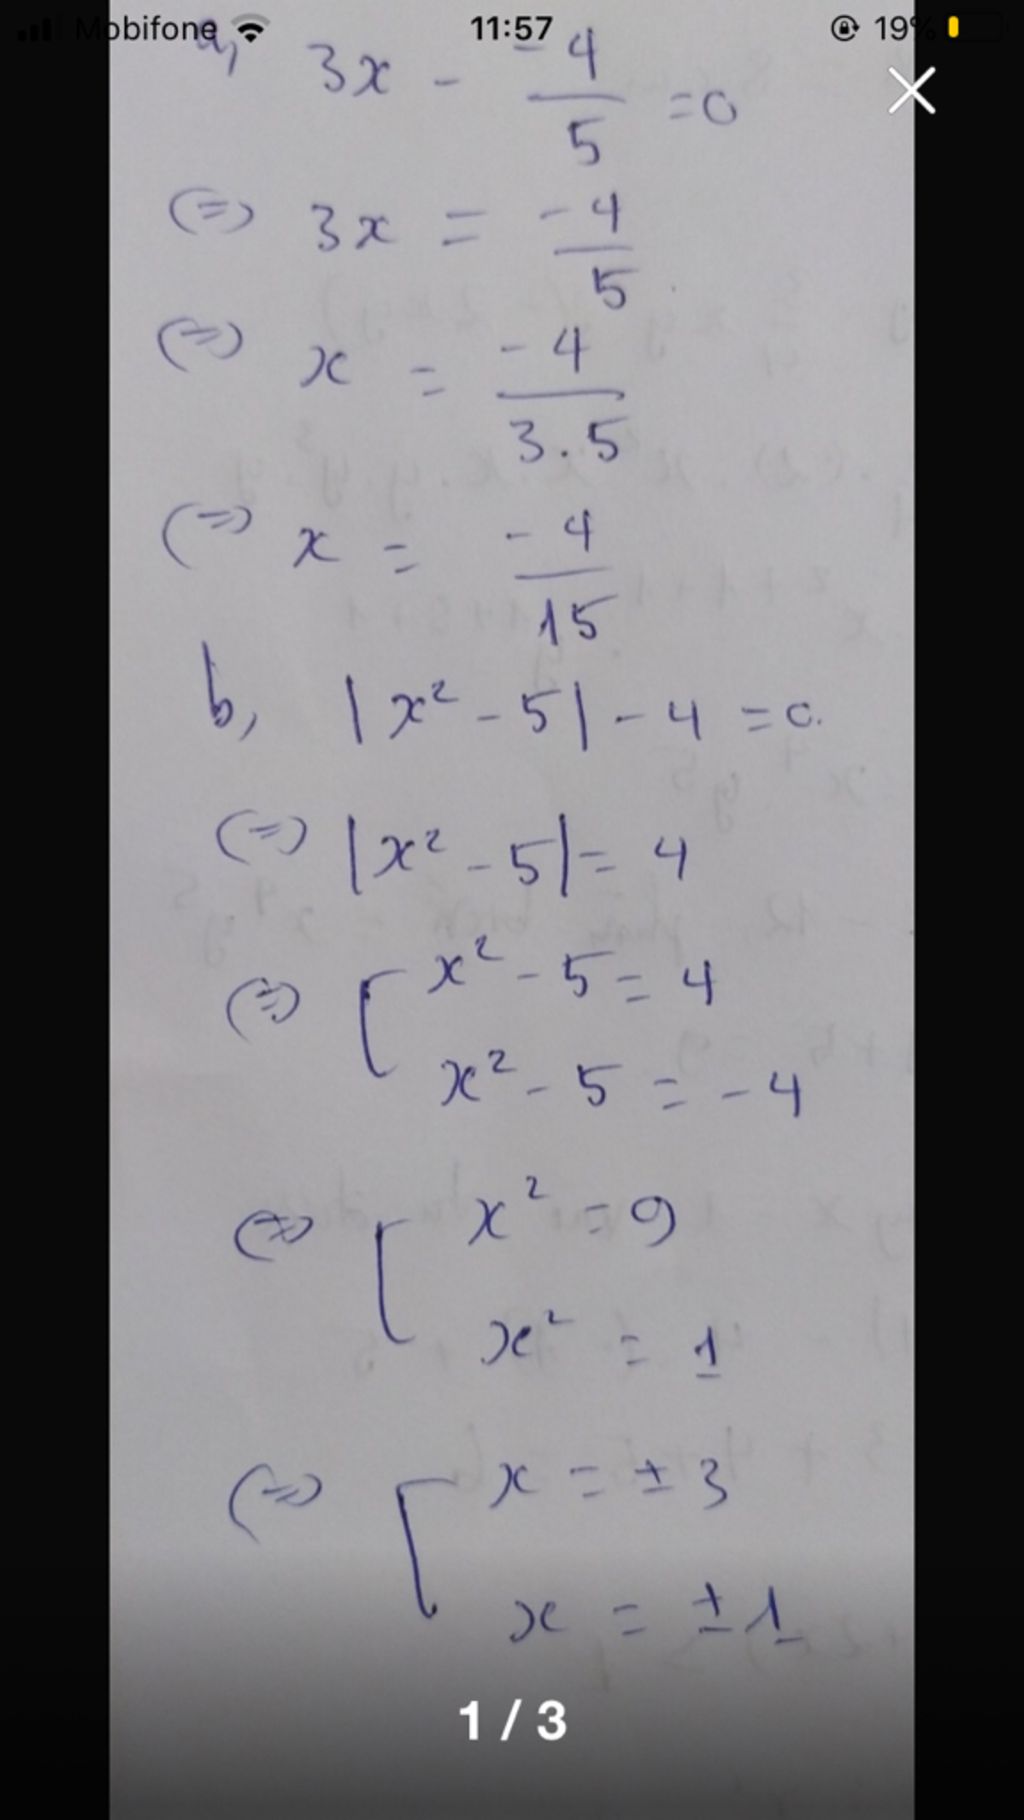 Mobifone 11:57 19%
a, 3x - -4/5 = 0
(=) 3x = -4/5
(=) x = -4/3.5
(=) x = -4/15
b, |x² - 5| - 4 = 0.
(=) |x² - 5| = 4
(=) [ x² - 5 = 4
x² - 5 = -4
(=) [ x² = 9
x² = 1
(=) [ x = ± 3
x = ± 1
1 / 3